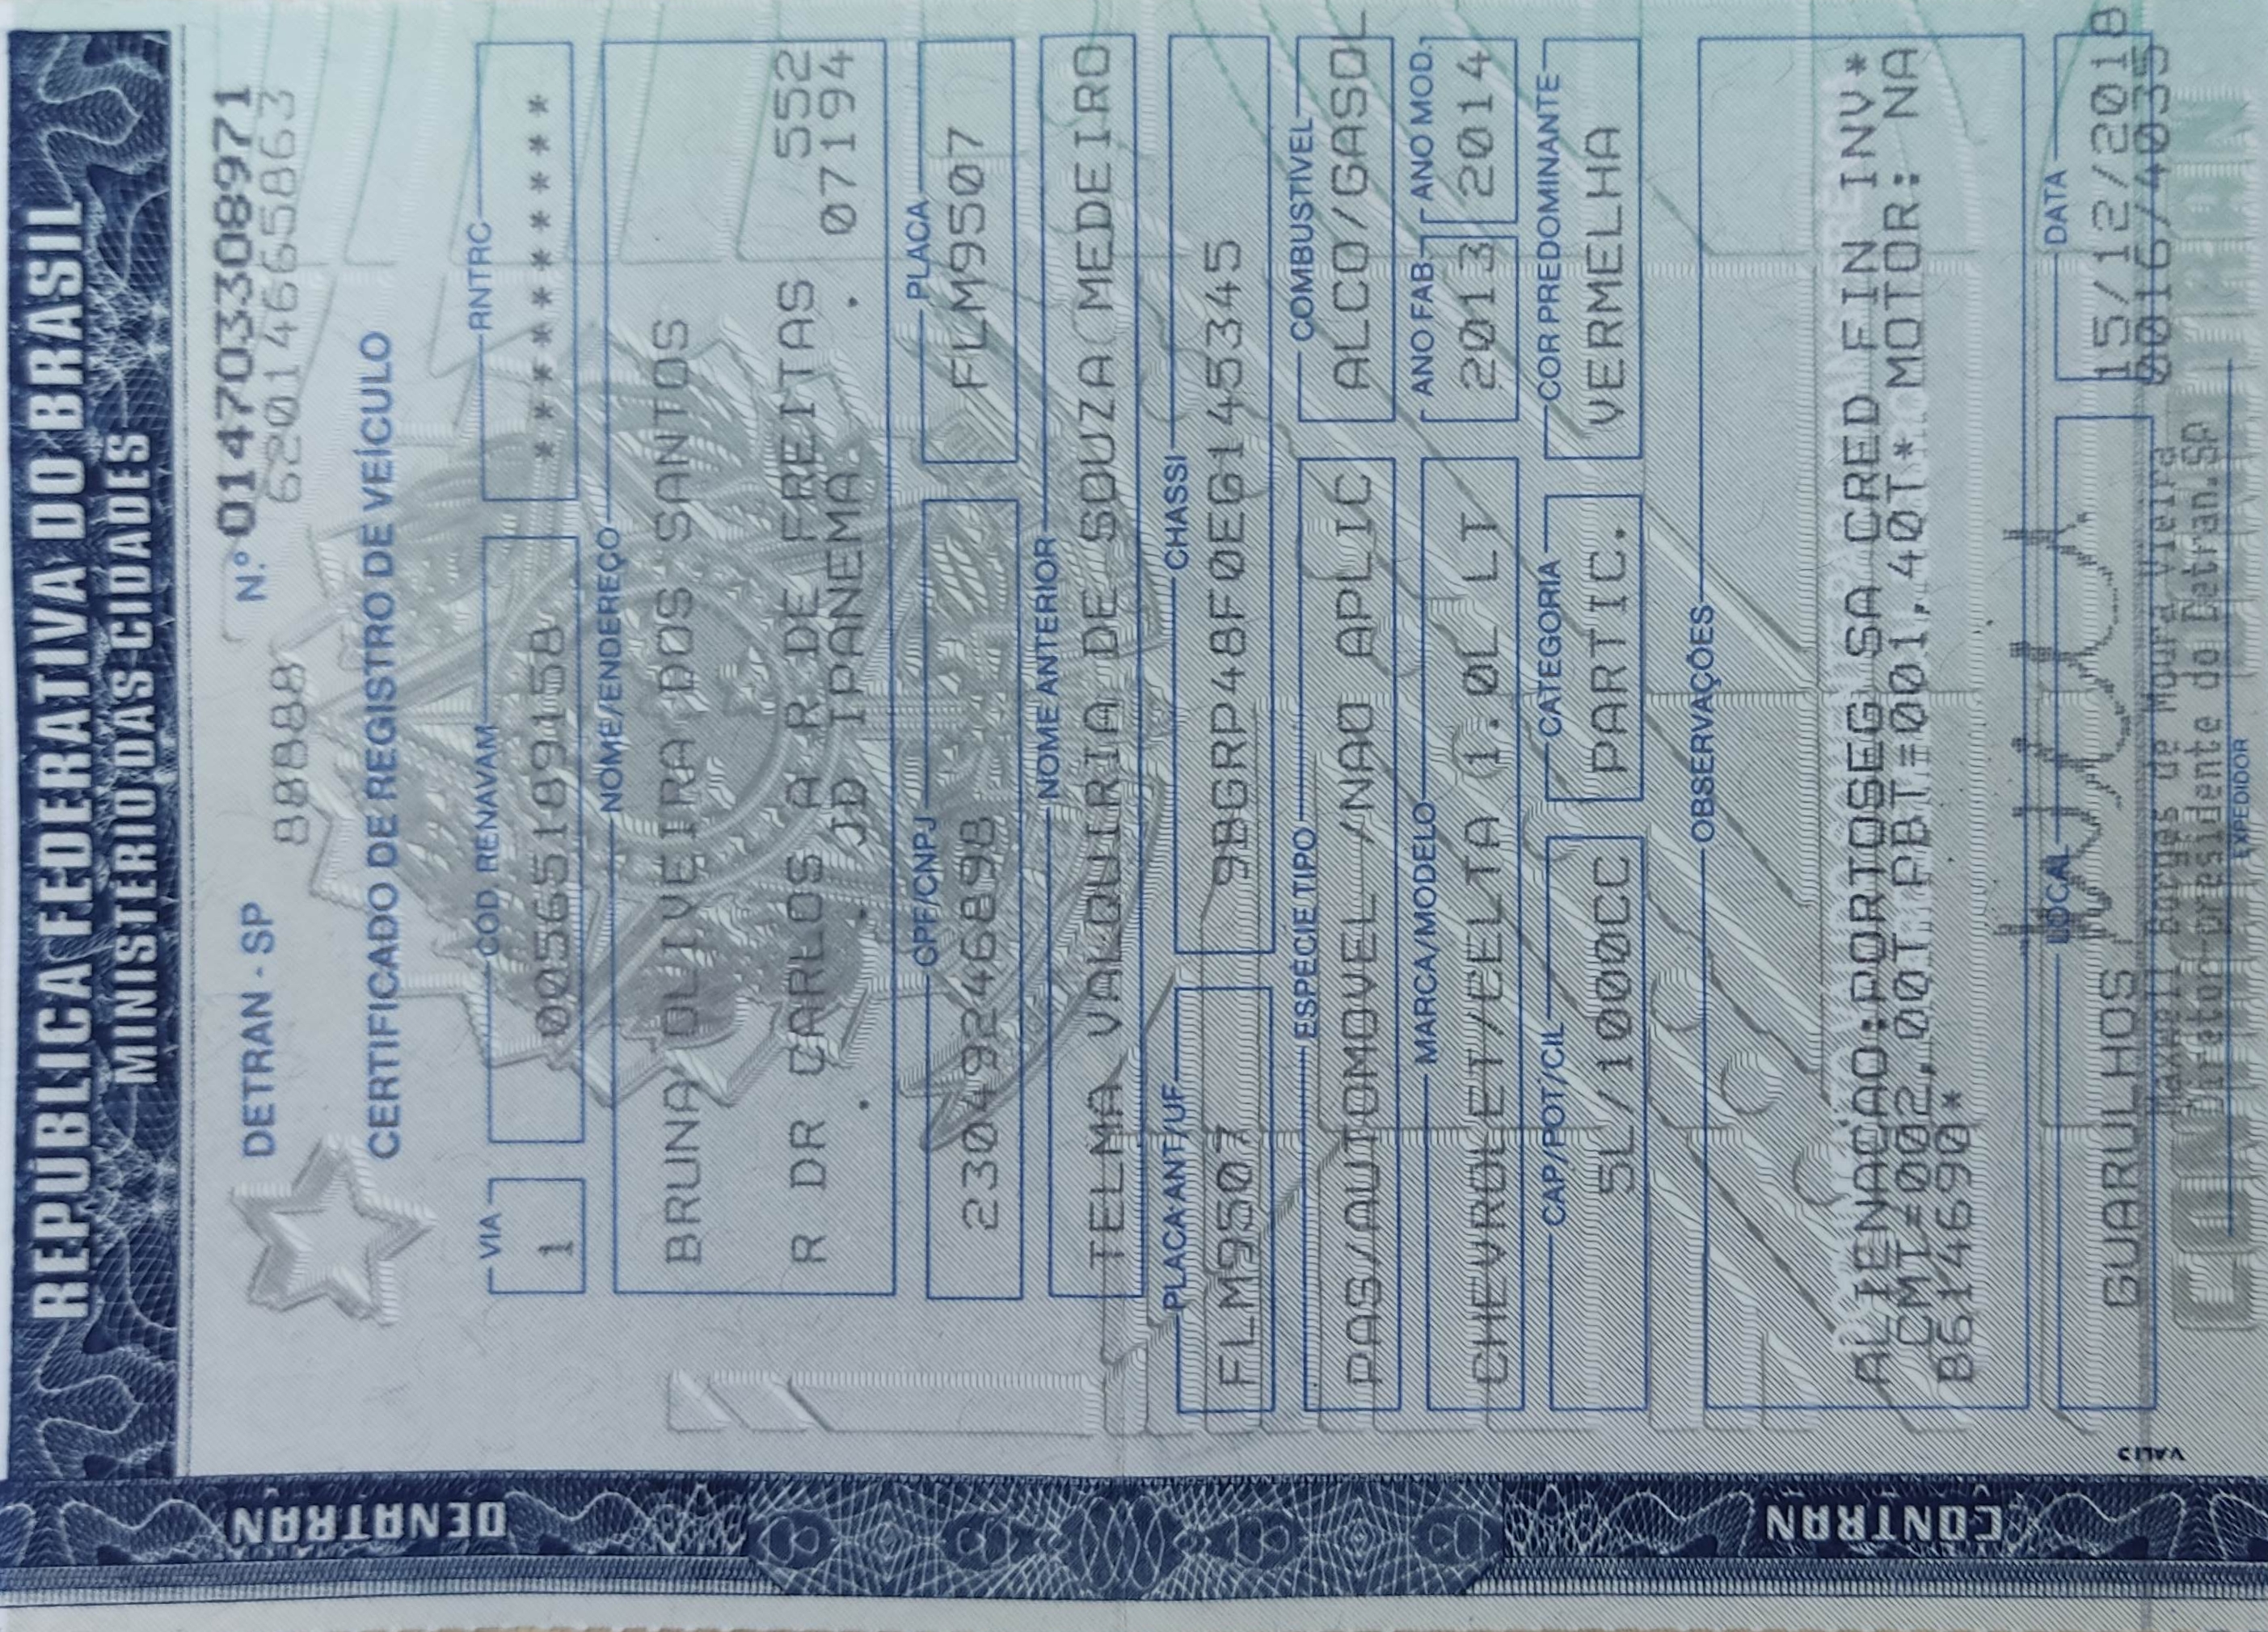 REPÚBLICA FEDERATIVA DO BRASIL
MINISTÉRIO DAS CIDADES
DETRAN - SP
N.º 014703308971
88888
620146655863
CERTIFICADO DE REGISTRO DE VEÍCULO
VIA
1
CÓD RENAVAM
00565189158
RNTRC
**********
NOME/ENDEREÇO
BRUNA OLIVEIRA DOS SANTOS
R DR CARLOS A R DE FREITAS 552
. JD IPANEMA . 07194
CPF/CNPJ
23049246898
PLACA
FLM9507
NOME ANTERIOR
TELMA VALQUIRIA DE SOUZA MEDEIRO
PLACA ANT/UF
FLM9507
CHASSI
9BGRP48F0EG145345
ESPÉCIE TIPO
PAS/AUTOMOVEL /NAO APLIC
COMBUSTÍVEL
ALCO/GASOL
MARCA/MODELO
CHEVROLET/CELTA 1.0L LT
ANO FAB
2013
ANO MOD.
2014
CAP/POT/CIL
5L/1000CC
CATEGORIA
PARTIC.
COR PREDOMINANTE
VERMELHA
OBSERVAÇÕES
ALIENACAO:PORTOSEG SA CRED FIN INV*
CMT=002,00T PBT=001,40T* MOTOR: NA
B6146690*
LOCAL
GUARULHOS
DATA
15/12/2018
0016/4035
Maxwell Borges de Moura Vieira
Diretor-presidente do Detran.SP
EXPEDIDOR
DENATRAN
CONTRAN